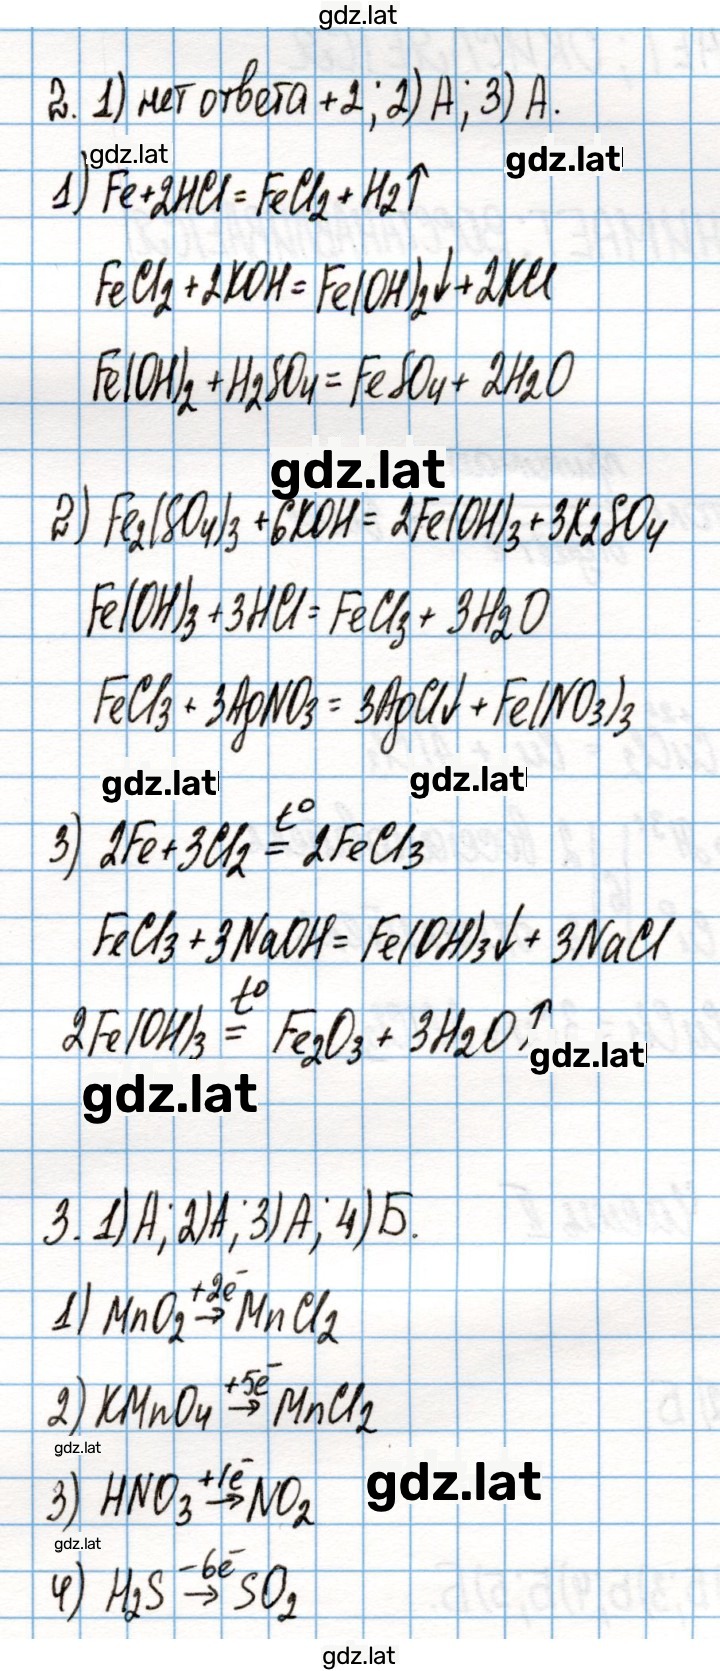 gdz.lat
2. 1) нет ответа +2; 2) А; 3) А.
gdz.lat
gdz.lat
1) Fe+2HCl=FeCl₂+H₂↑
FeCl₂+2KOH=Fe(OH)₂↓+2KCl
Fe(OH)₂+H₂SO₄=FeSO₄+2H₂O
gdz.lat
2) Fe₂(SO₄)₃+6KOH=2Fe(OH)₃+3K₂SO₄
Fe(OH)₃+3HCl=FeCl₃+3H₂O
FeCl₃+3AgNO₃=3AgCl↓+Fe(NO₃)₃
gdz.lat
gdz.lat
t°
3) 2Fe+3Cl₂=2FeCl₃
FeCl₃+3NaOH=Fe(OH)₃↓+3NaCl
t°
2Fe(OH)₃=Fe₂O₃+3H₂O↑
gdz.lat
gdz.lat
3. 1) А; 2) А; 3) А; 4) Б.
+2e⁻
1) MnO₂→MnCl₂
+5e⁻
2) KMnO₄→MnCl₂
gdz.lat
gdz.lat
+1e⁻
3) HNO₃→NO₂
gdz.lat
-6e⁻
4) H₂S→SO₂
gdz.lat